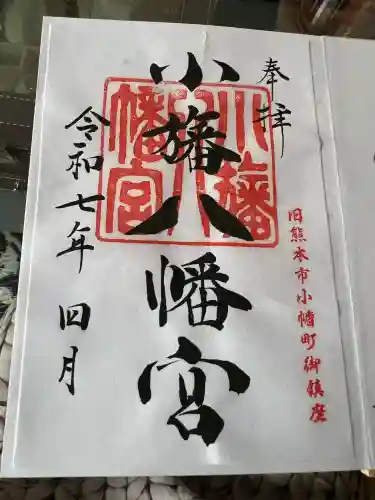 奉拝
旧熊本市小幡町御鎮座
小幡八幡宮
小幡八幡宮
令和七年 四月